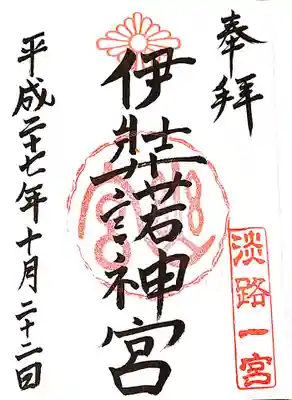 奉拝
淡路一宮
伊弉諾神宮
平成二十七年十月二十二日